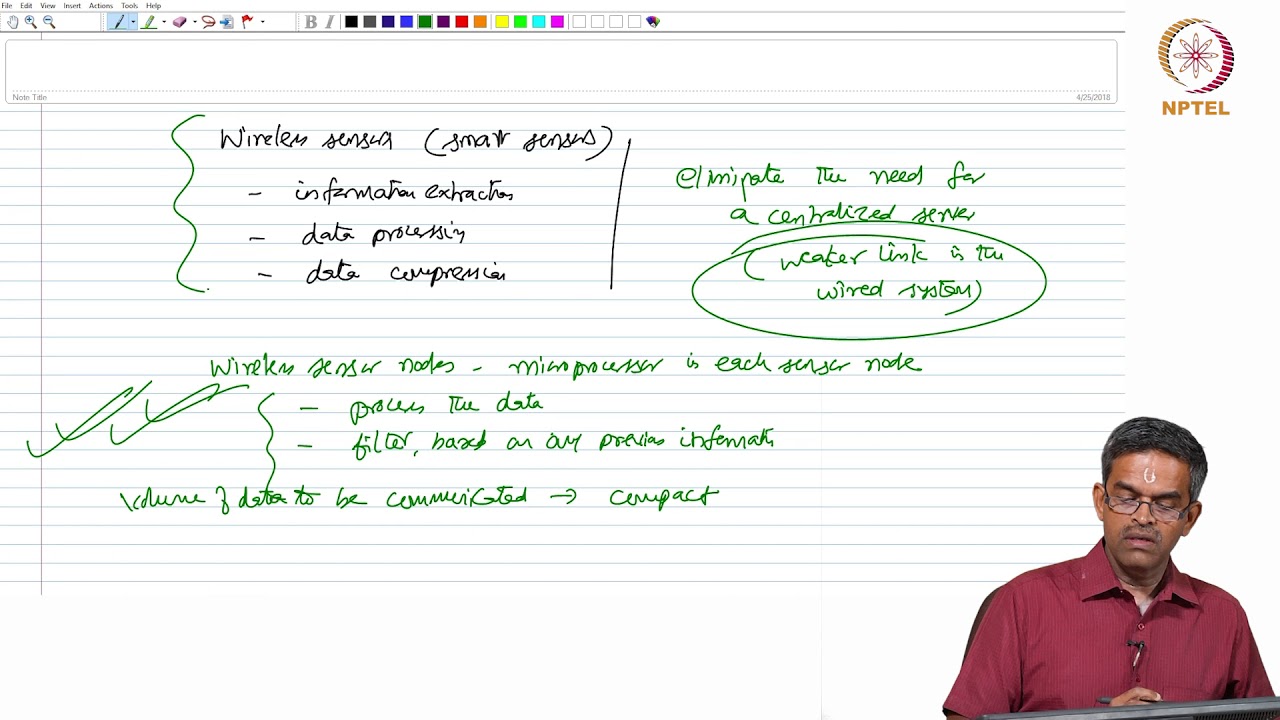 File Edit View Insert Actions Tools Help
B I
NPTEL
Note Title
4/25/2018
Wireless sensors (smart sensors)
- information extraction
- data processing
- data compression
eliminate the need for
a centralized server
(weaker link is the
wired system)
Wireless sensor nodes - microprocessor in each sensor node
- process the data
- filter, based on any previous information
Volume of data to be communicated → compact